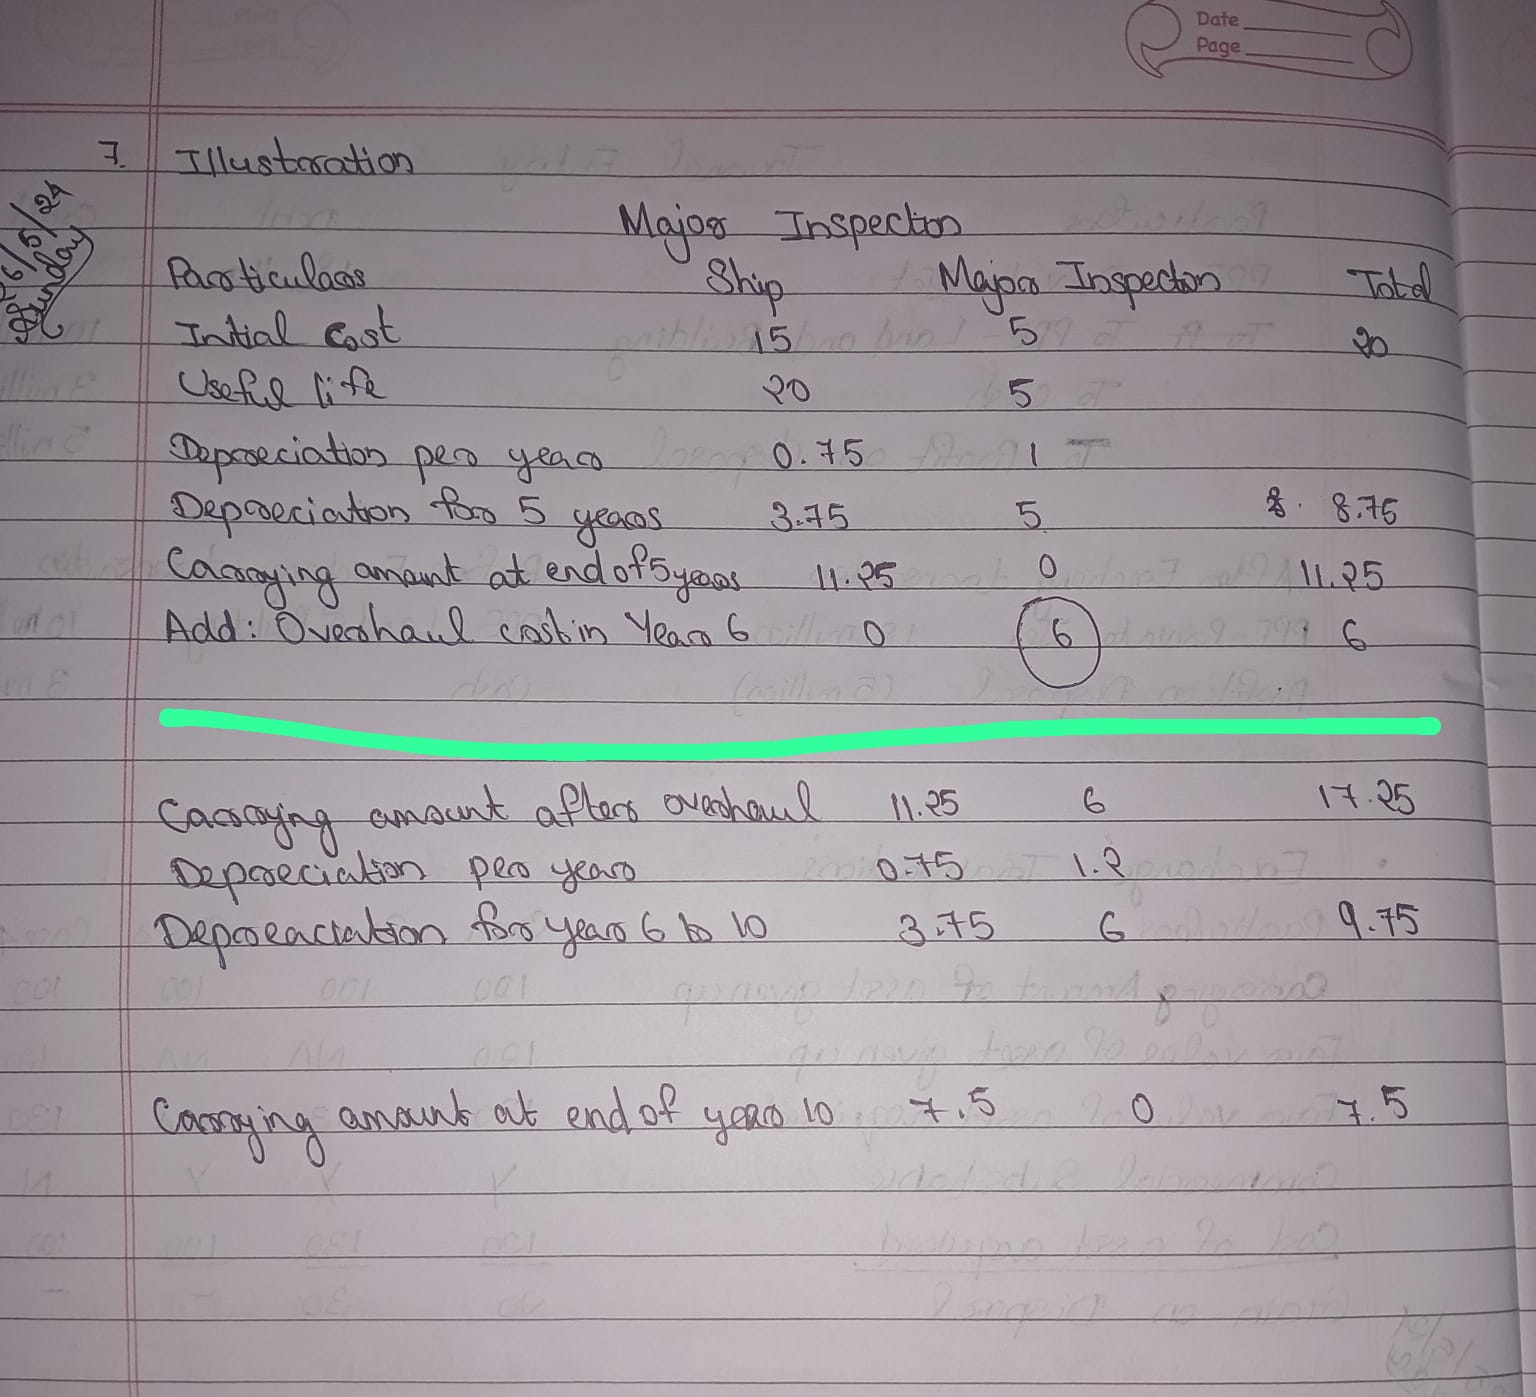 Date
Page
7. Illustration
26/5/24
Sunday
Major Inspection
Particulars Ship Major Inspection Total
Initial Cost 15 5 20
Useful life 20 5
Depreciation per year 0.75 1
Depreciation for 5 years 3.75 5 8.75
Carrying amount at end of 5 years 11.25 0 11.25
Add: Overhaul cost in Year 6 0 6 6
Carrying amount after overhaul 11.25 6 17.25
Depreciation per year 0.75 1.2
Depreaciation for year 6 to 10 3.75 6 9.75
Carrying amount at end of year 10 7.5 0 7.5